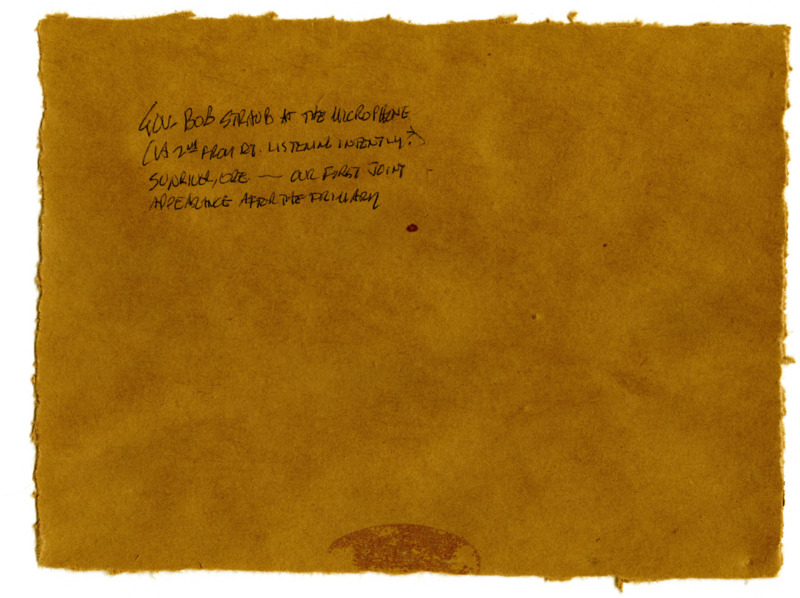 GOV. BOB STRAUB AT THE MICROPHONE
(VA 2nd FROM RT. LISTENING INTENTLY?)
SUNRIVER, ORE — OUR FIRST JOINT
APPEARANCE AFTER THE PRIMARY